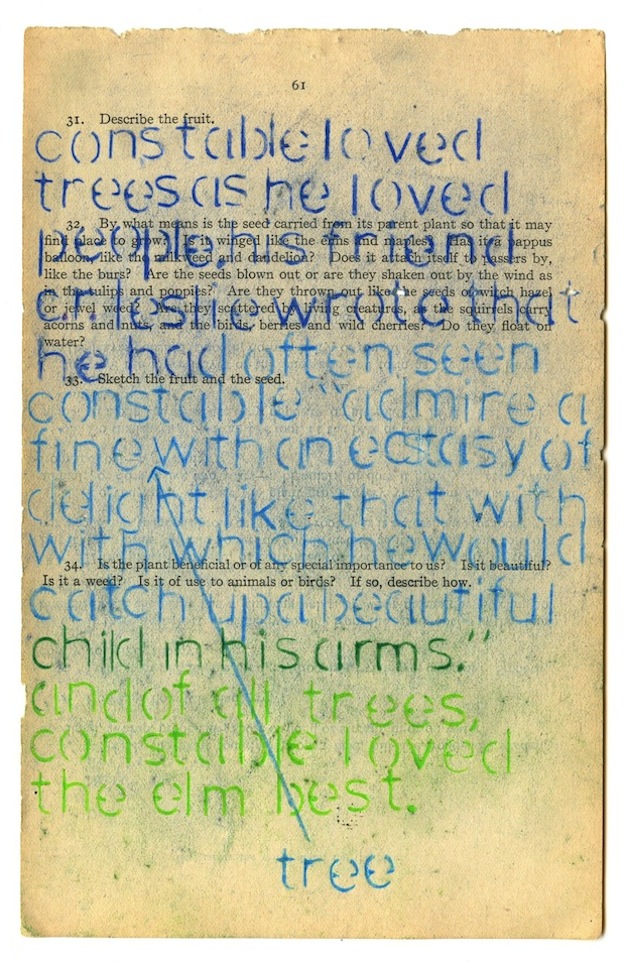 61
31. Describe the fruit.
constable loved
trees as he loved
32. By what means is the seed carried from its parent plant so that it may
people. his friend
find place to grow? Is it winged like the elms and maples? Has it a pappus
balloon, like the milkweed and dandelion? Does it attach itself to passers by,
like the burs? Are the seeds blown out or are they shaken out by the wind as
in the tulips and poppies? Are they thrown out like the seeds of witch hazel
c.r. leslie wrote that
or jewel weed? Are they scattered by living creatures, as the squirrels carry
acorns and nuts, and the birds, berries and wild cherries? Do they float on
water?
he had often seen
33. Sketch the fruit and the seed.
constable "admire a
fine with an ecstasy of
delight like that with
with which he would
34. Is the plant beneficial or of any special importance to us? Is it beautiful?
Is it a weed? Is it of use to animals or birds? If so, describe how.
catch up a beautiful
child in his arms."
and of all trees,
constable loved
the elm best.
tree